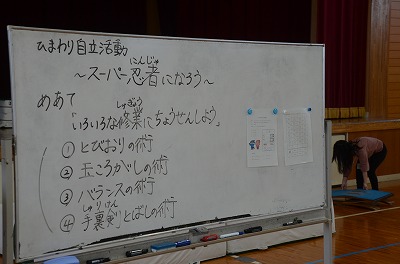 ひまわり自立活動
にんじゃ
～スーパー忍者になろう～
めあて
しゅぎょう
「いろいろな修業にちょうせんしよう」
①とびおりの術
②玉ころがしの術
③バランスの術
しゅりけん
④手裏剣とばしの術